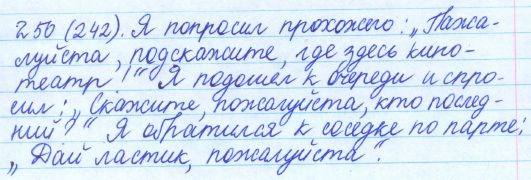 250 (242). Я попросил прохожего: „Пожа-
луйста, подскажите, где здесь кино-
театр!“ Я подошел к очереди и спро-
сил: „Скажите, пожалуйста, кто послед-
ний?“ Я обратился к соседке по парте:
„Дай ластик, пожалуйста“.